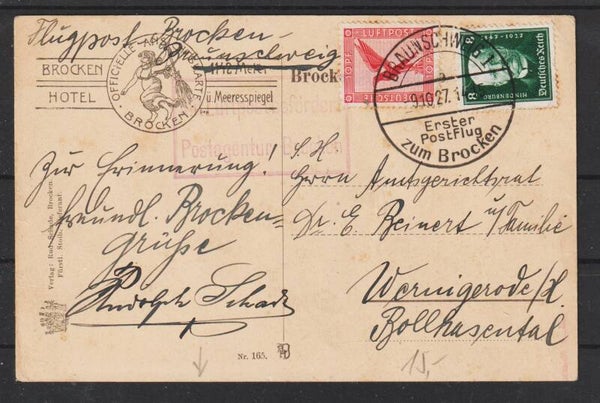 Flugpost Brocken-
Braunschweig
BROCKEN
HOTEL
OFFICIELLE ANSICHTSKARTE
BROCKEN
1142 Meter
ü. Meeresspiegel
Brock
LUFTPOST
10 PF
10 PF
DEUTSCHE
1847-1927
8
8
HINDENBURG
Deutsches Reich
BRAUNSCHWEIG
9.10.27.
Erster
Postflug
zum Brocken
Luftpost
Postagentum Brocken
Zur Erinnerung!
freundl. Brocken-
Grüße
Rudolph Schade
S. H.
Herrn Amtsgerichtsrat
Dr. E. Beinert u/Familie
Wernigerode/H.
Bollhasental
Verlag: Rud. Schade, Brocken.
Fürstl. Stolb.
Nr. 165.
15,-